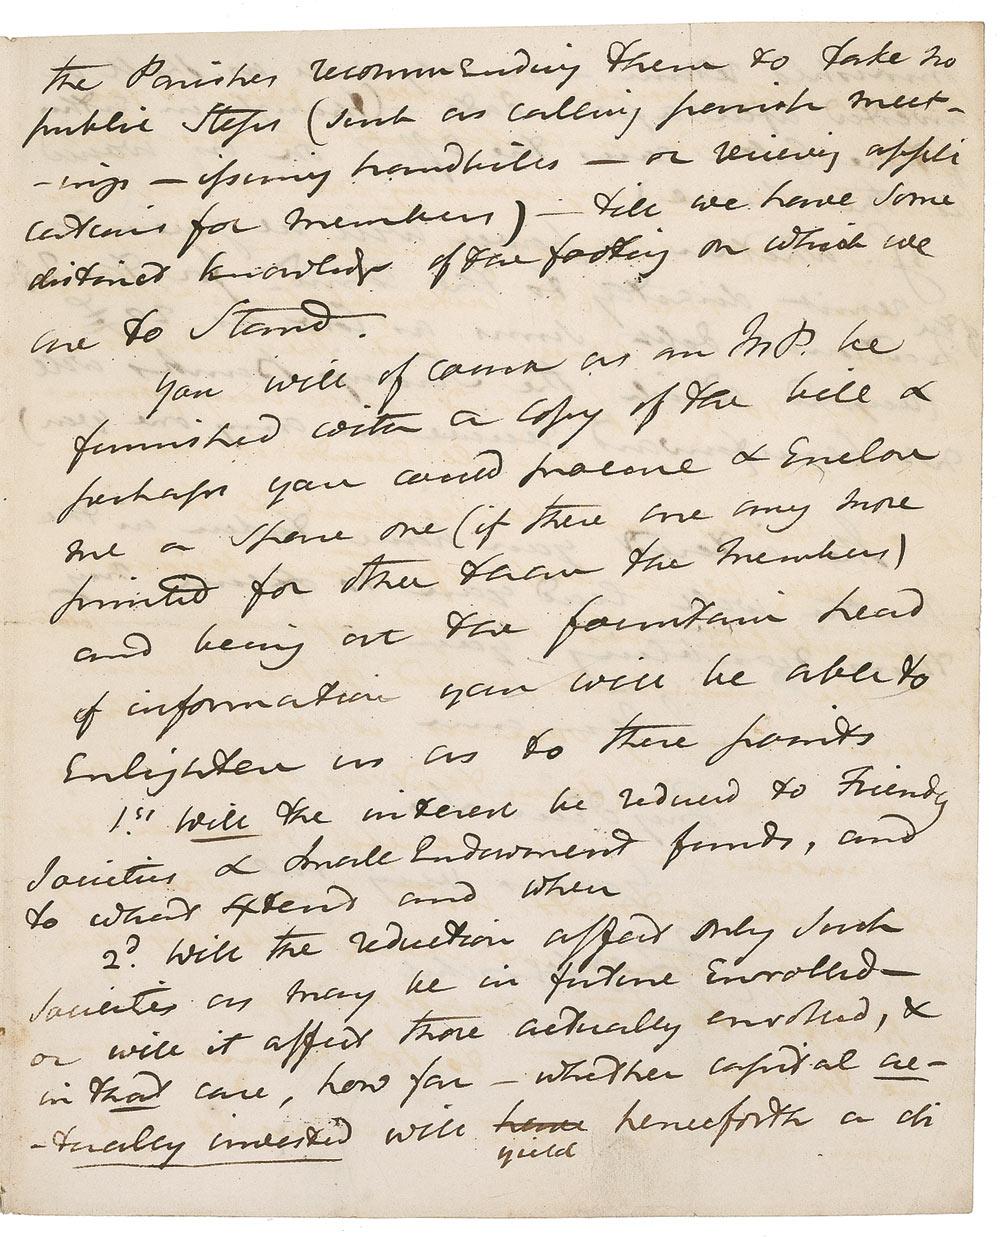 the Parishes recommending them to take no
public Steps (such as calling parish meet-
-ings — issuing handbills — or receiving appli
cations for members) — till we have some
distinct knowledge of the footing on which we
are to Stand.
You will of course as an M.P. be
furnished with a copy of the bill &
perhaps you could procure & Enclose
me a spare one (if there are any more
printed for other than the members)
and being at the fountain head
of information you will be able to
Enlighten us as to these points
1.st will the interest be reduced to Friendly
Societies & Small Endowment funds, and
to what Extend and when
2.d will the reduction affect only such
Societies as may be in future Enrolled—
or will it affect those actually enrolled, &
in that case, how far — whether capital ac-
-tually invested will have henceforth a di
yield